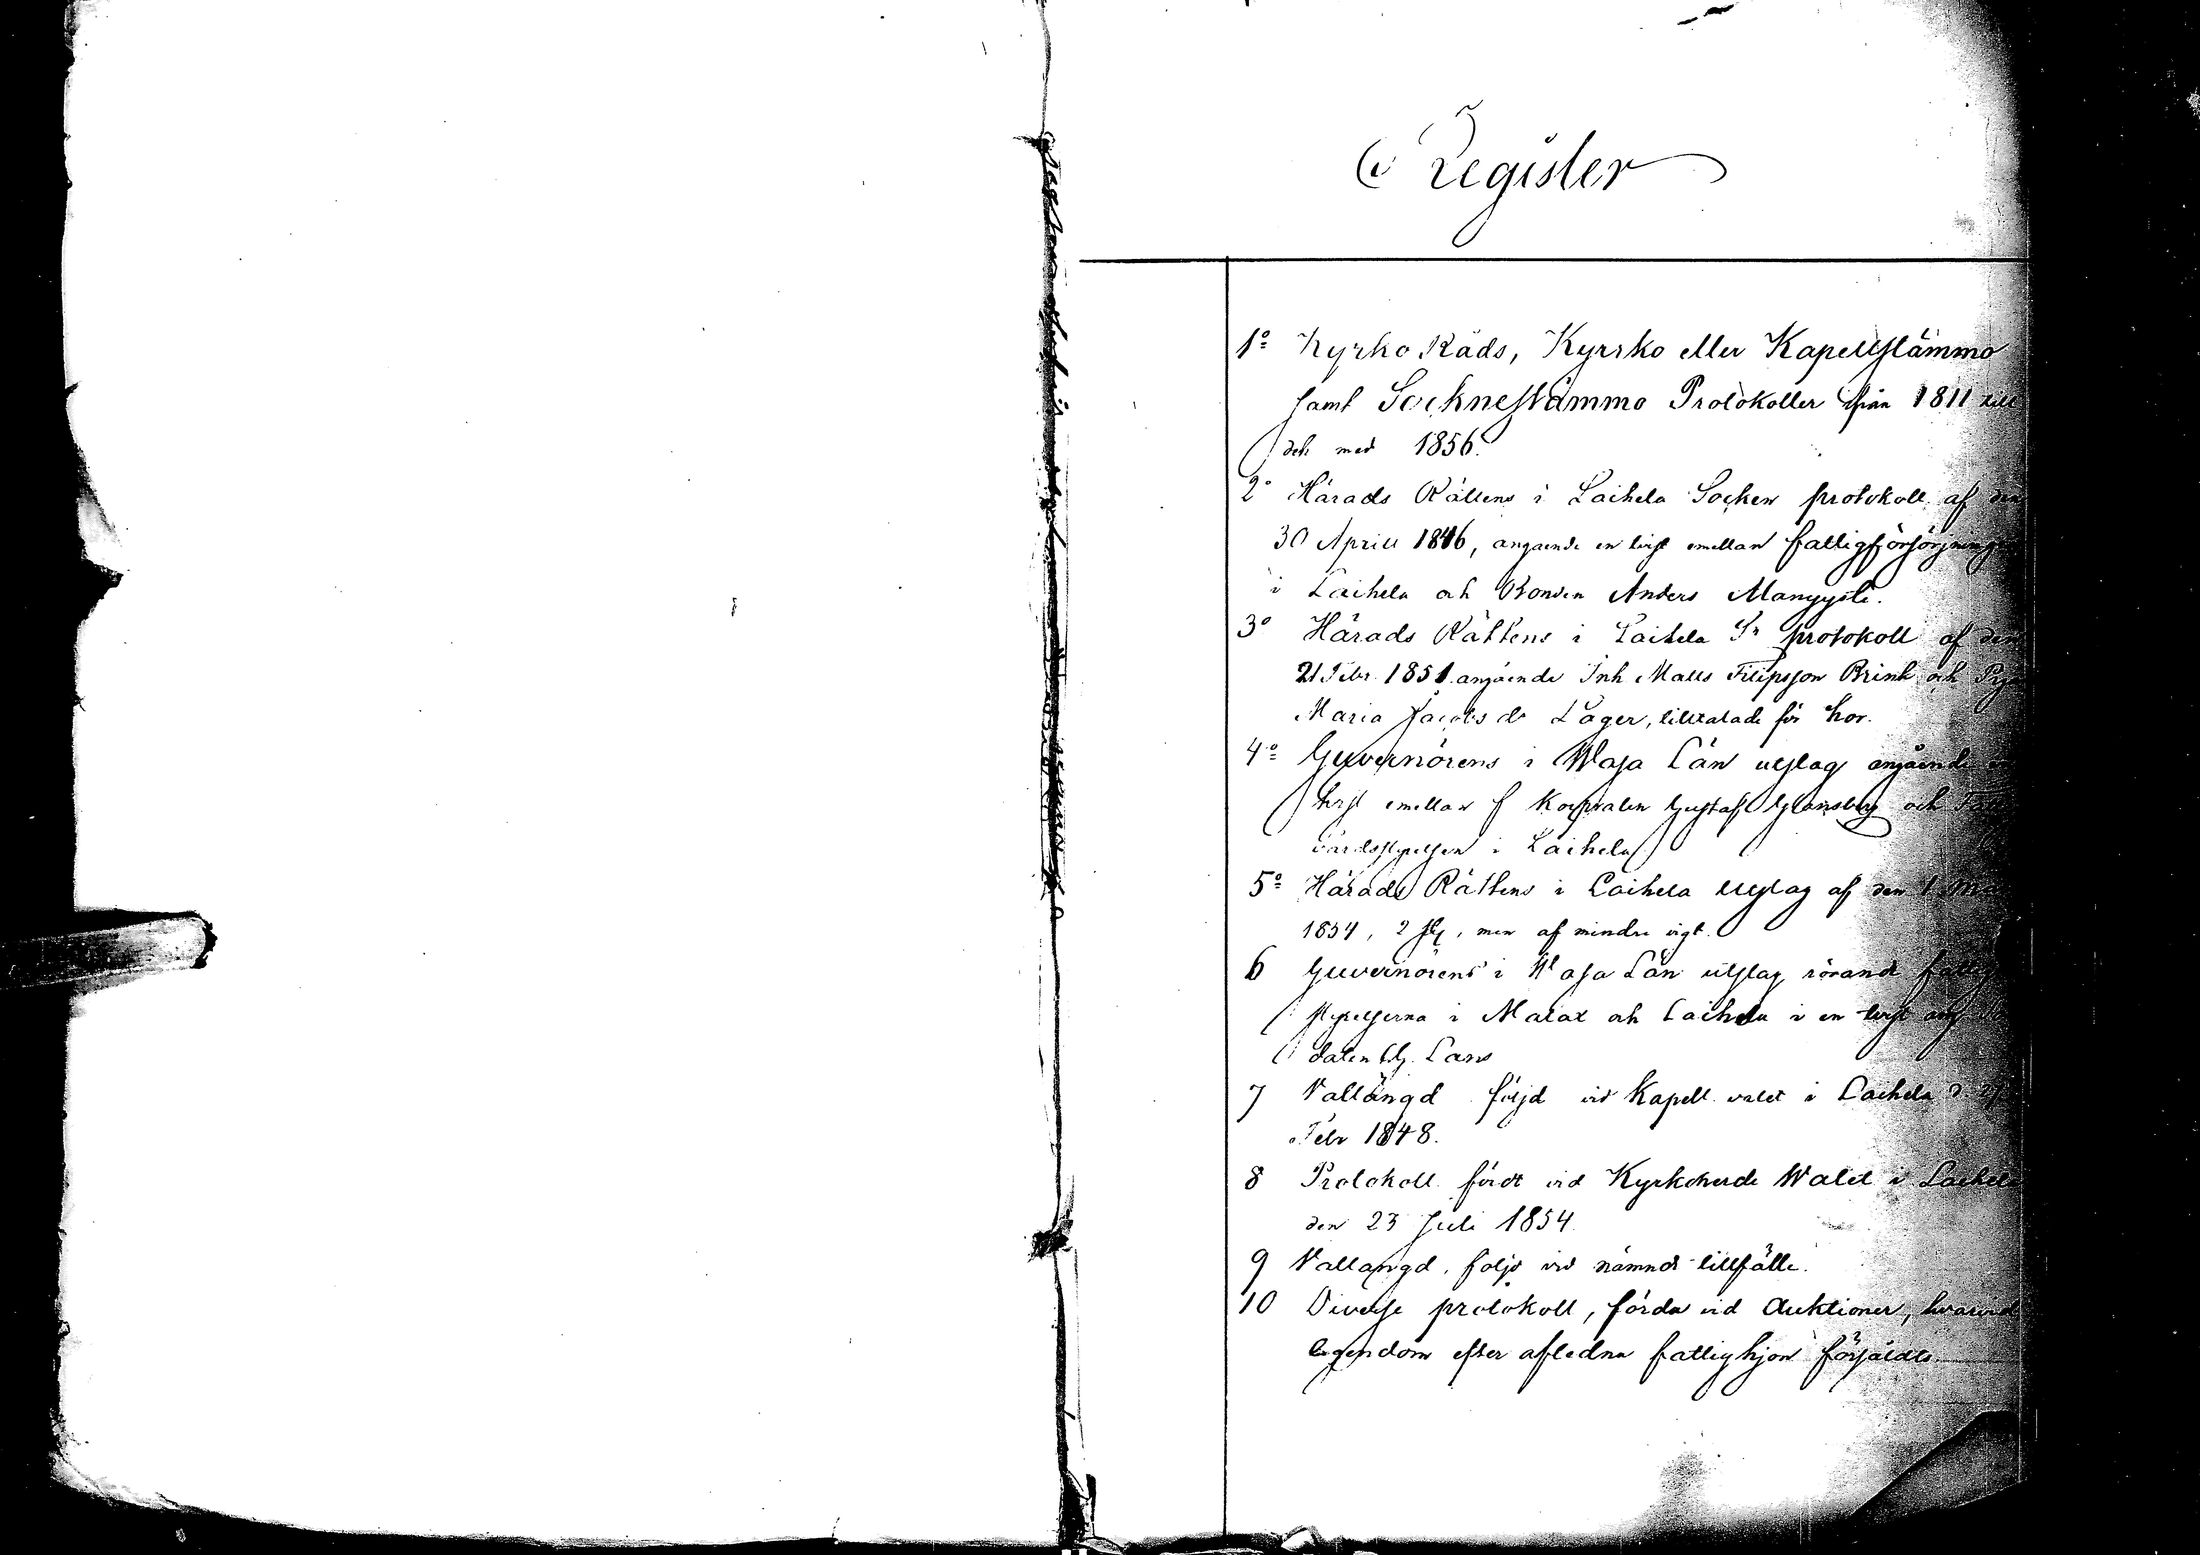 Register
1o Kyrko Råds, Kyrsko eller Kapellstämmo
samt Socknestämmo Protokoller ifrån 1811 till
och med 1856.
2o Härads Rättens i Laihela Socken protokoll af den
30 Aprill 1846, angaende en tvist emellan fattigförsörjningen
i Laihela och Bonden Anders
3o Härads Rättens i Laihela Sn protokoll af den
21 Febr. 1851 angående Inh Matts Filipsson Brink och
Maria Jacobs dr Lager, tilltalade för hor.
4o Guvernörens i Wasa Län utslag angående en
tvist emellan f Korpralen Gustaf Glansberg och
vårdsstyrelsen i Laihela
5o Härads Rättens i Laihela Utslag af den 1
1854, 2 st, men af mindre vigt.
6 Guvernörens i Wasa Län utslag rörande
styrelserna i Malax och Laihela i en tvist ang
daten G. Lans
7 Vallängd följd vid Kapell. valet i Laihela d. 27
Febr 1848.
8 Protokoll fördt vid Kyrkoherde Walet i Laihela
den 23 Juli 1854.
9 Vallangd, följd vid nämnde tillfälle.
10 Diverse protokoll, förda vid Auktioner, hvarvid
egendom efter aflidna fattighjon försåldts